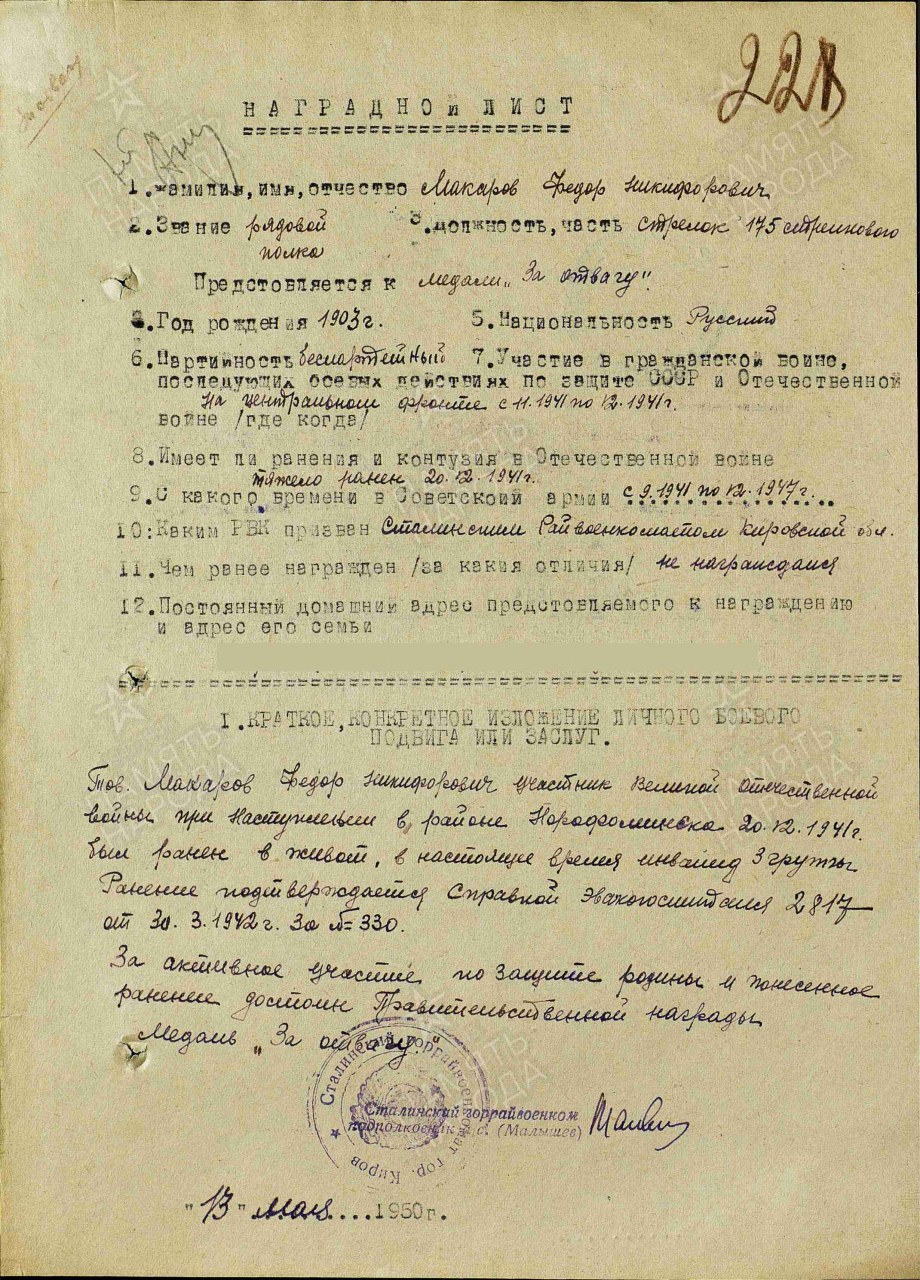 221
НАГРАДНОЙ ЛИСТ
1. Фамилия, имя, отчество Макаров Федор Никифорович
2. Звание рядовой 3. должность, часть стрелок 175 стрелкового
полка
Предстовляется к медали „За отвагу".
4. Год рождения 1903 г. 5. Национальность Русский
6. Партийность беспартейный 7. Участие в гражданской войне,
последующих боевых действиях по защите СССР и Отечественной
На центральном фронте с 11.1941 по 12.1941г.
войне /где когда/
8. Имеет ли ранения и контузия в Отечественной войне
тяжело ранен 20.12.1941г.
9. С какого времени в Советской армии с 9.1941 по 12.1947г.
10: Каким РВК призван Сталинским Райвоенкоматом Кировской обл.
11. Чем ранее награжден /за какия отличия/ не награждался
12. Постоянный домашний адрес предстовляемого к награждению
и адрес его семьи
I. КРАТКОЕ, КОНКРЕТНОЕ ИЗЛОЖЕНИЕ ЛИЧНОГО БОЕВОГО
ПОДВИГА ИЛИ ЗАСЛУГ.
Тов. Макаров Федор Никифорович участник Великой Отечественной
войны при наступлении в районе Норофоминска 20.12.1941г.
был ранен в живот, в настоящее время инвалид 3 группы
Ранение подтверждается Справкой Эвакогоспиталя 2817
от 30.3.1942г. За №330.
За активное участие по защите родины и понесенное
ранение достоин Правительственной награды
Медаль „За отвагу".
Сталинский горрайвоенкомат гор. Киров
Сталинский горрайвоенком
подполковник (Малышев)
"13" мая....1950г.